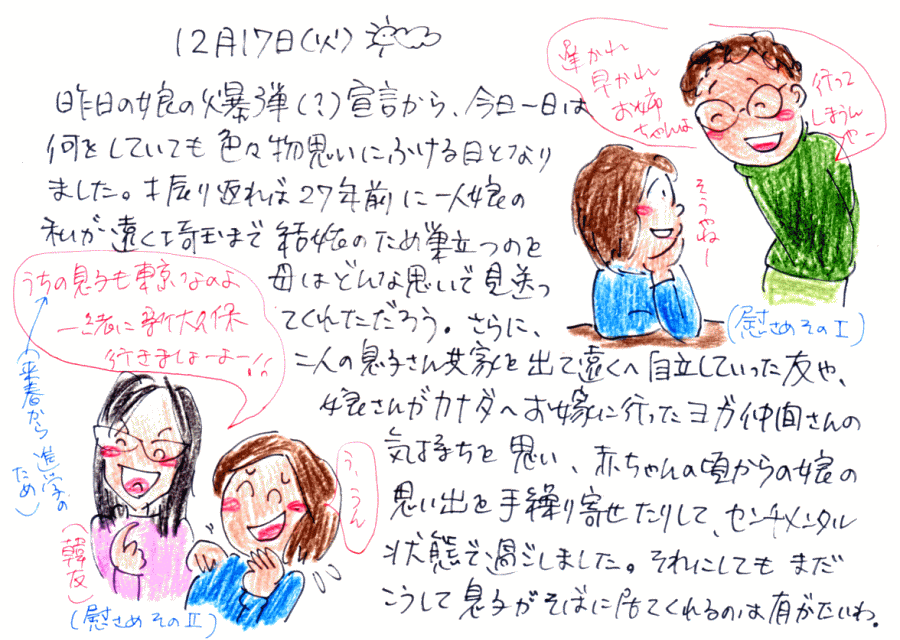 12月17日(火)
昨日の娘の爆弾(?)宣言から、今日一日は
何をしていても色々物思いにふける日となり
ました。振り返れば27年前に一人娘の
私が遠く埼玉まで結婚のため巣立つのを
母はどんな思いで見送っ
てくれただろう。さらに、
二人の息子さん共家を出て遠くへ自立していった友や、
娘さんがカナダへお嫁に行ったヨガ仲間さんの
気持ちを思い、赤ちゃんの頃からの娘の
思い出を手繰り寄せたりして、センチメンタル
状態で過ごしました。それにしてもまだ
こうして息子がそばに居てくれるのは有がたいわ。
遅かれ
早かれ
お姉
ちゃんは
行って
しまうん
やー
そうやねー
(慰さめその I)
うちの息子も東京なのよ
一緒に新大久保
行きましょーよー!!
(来春から進学の
ため)
う、うん
(韓友)
(慰さめその II)